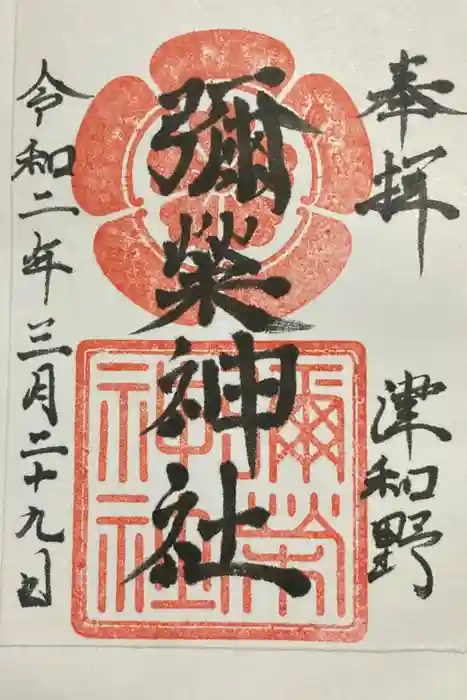 奉拝
津和野
彌榮神社
彌榮
神社
令和二年三月二十九日